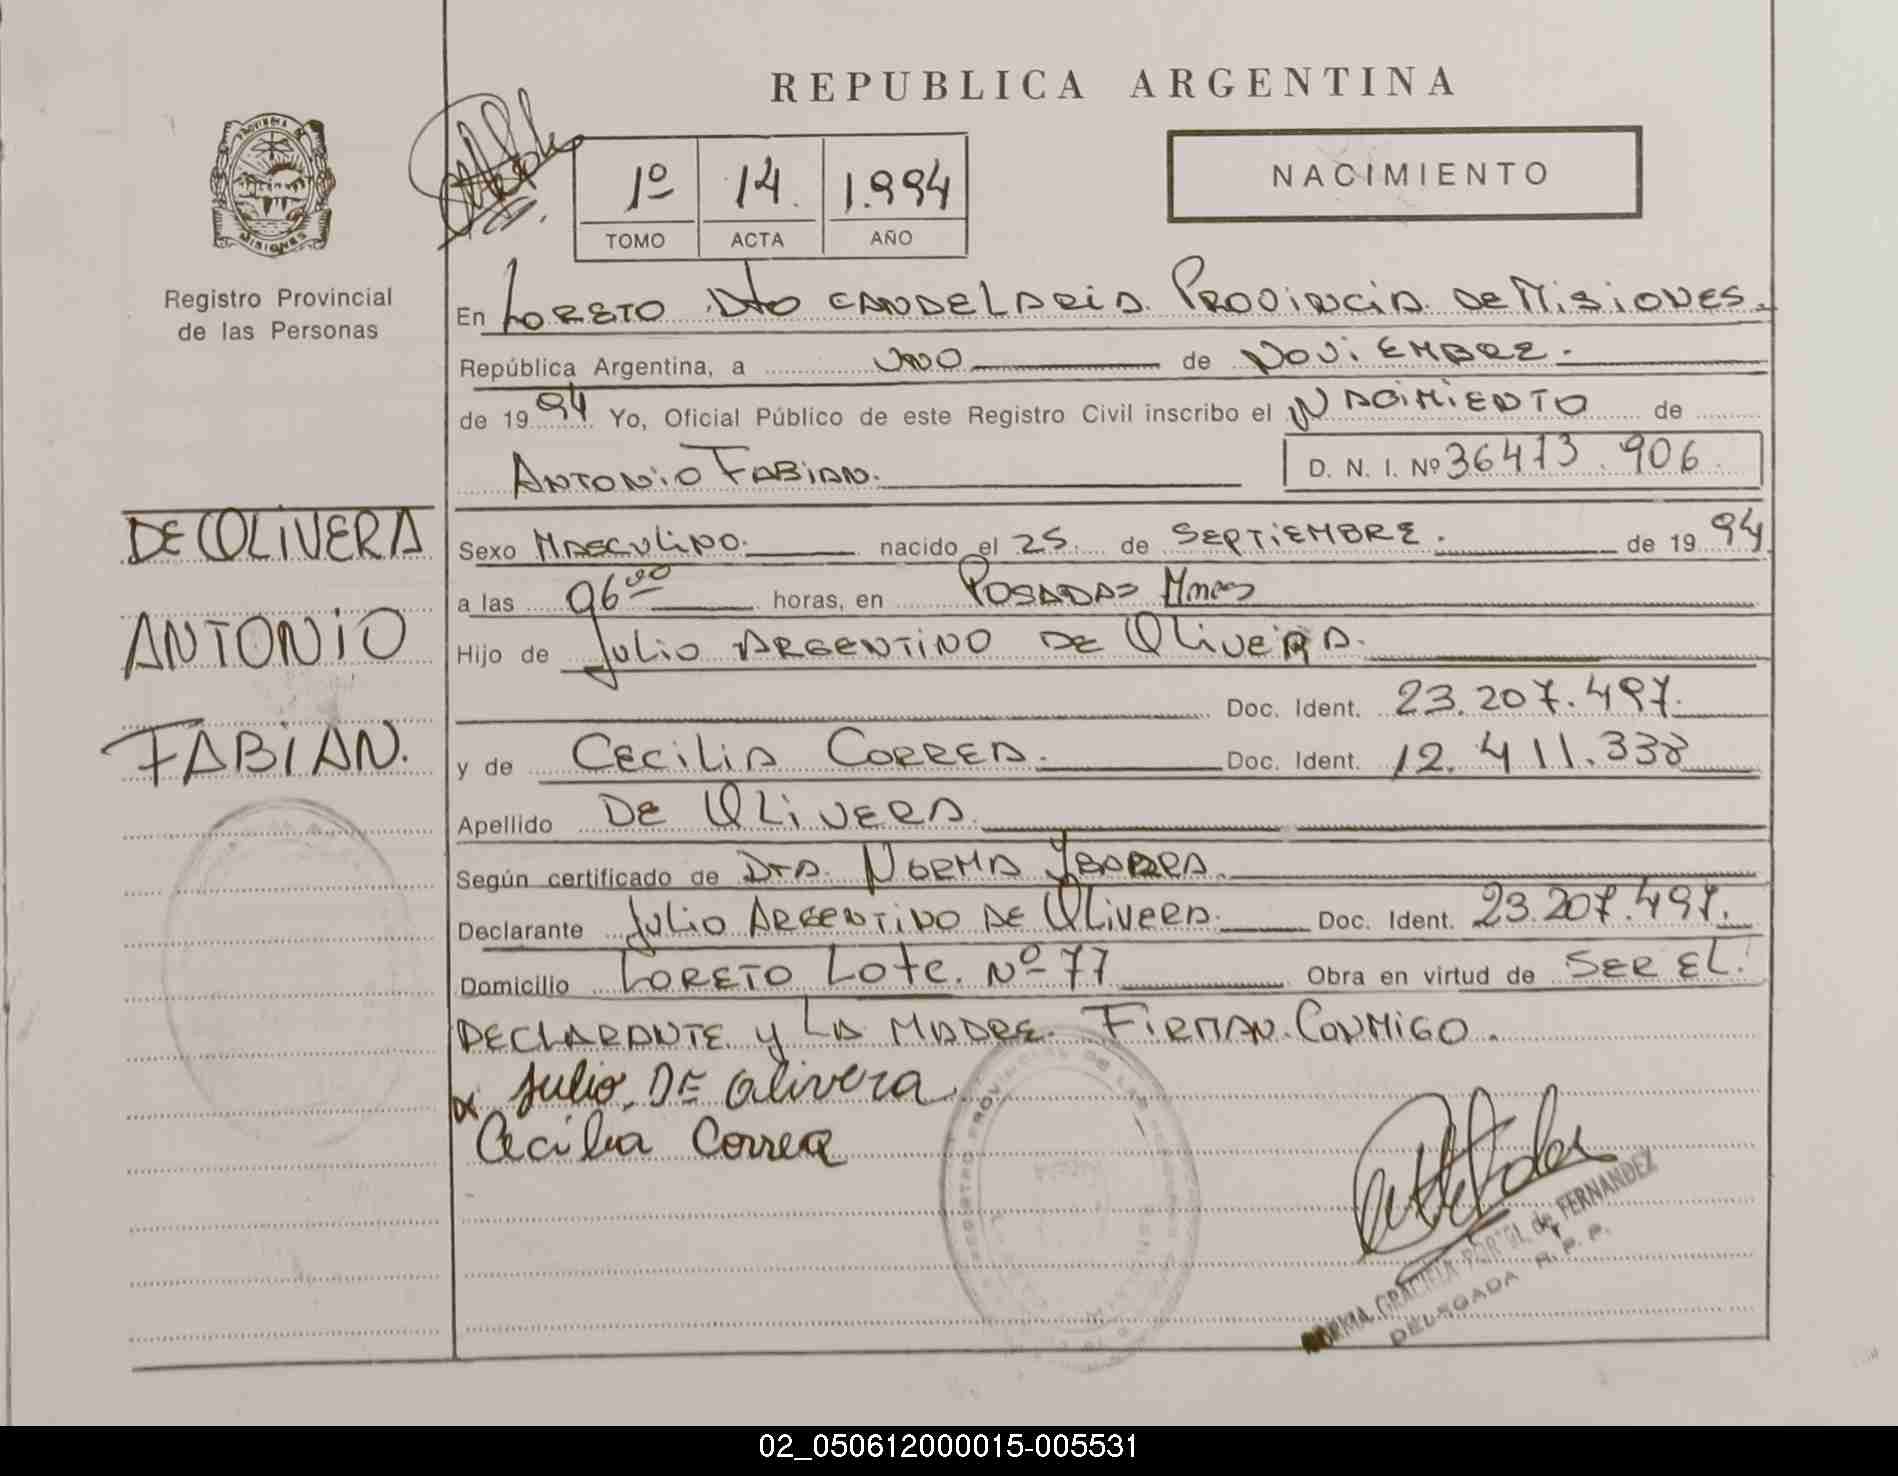 REPUBLICA ARGENTINA
PROVINCIA DE
MISIONES
Registro Provincial
de las Personas
1º 14. 1.994
TOMO ACTA AÑO
NACIMIENTO
En LORETO Dto CANDELARIA. PROVINCIA. DE MISIONES.
República Argentina, a UNO de NOVIEMBRE.
de 1994 Yo, Oficial Público de este Registro Civil inscribo el NACIMIENTO de
ANTONIO FABIAN. D. N. I. Nº 36473.906.
DE OLIVERA
ANTONIO
FABIAN.
Sexo MASCULINO. nacido el 25. de SEPTIEMBRE. de 1994
a las 06 00 horas, en POSADAS Mnes
Hijo de JULIO ARGENTINO DE OLIVEIRA.
Doc. Ident. 23.207.497.
y de CECILIA CORREA. Doc. Ident. 12.411.338
Apellido DE OLIVERA
Según certificado de Dra. NORMA YBARRA.
Declarante JULIO ARGENTINO DE OLIVERA. Doc. Ident. 23.207.497.
Domicilio LORETO Lote. Nº 77 Obra en virtud de SER EL.
DECLARANTE y LA MADRE. FIRMAN. CONMIGO.
Julio. DE Olivera
Cecilia Correa
NORMA GRACIELA PORTEL de FERNANDEZ
DELEGADA R. P. P.
02_050612000015-005531